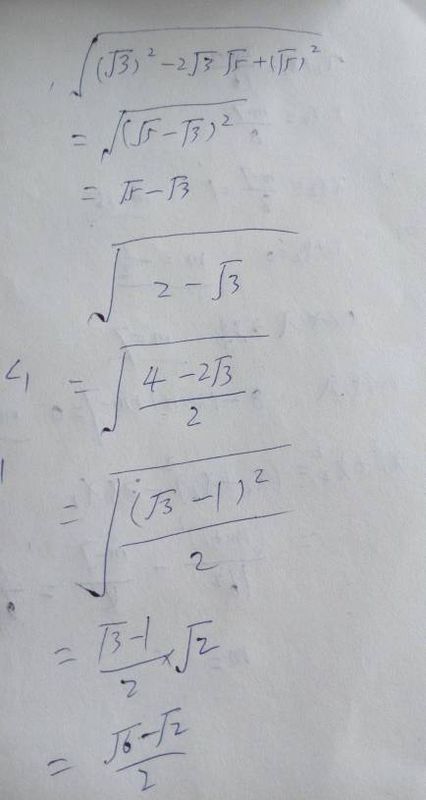 √((√3)² - 2√3 √5 + (√5)²)
= √((√5 - √3)²)
= √5 - √3
√(2 - √3)
= √((4 - 2√3)/2)
= √((√3 - 1)²/2)
= (√3 - 1)/2 × √2
= (√6 - √2)/2